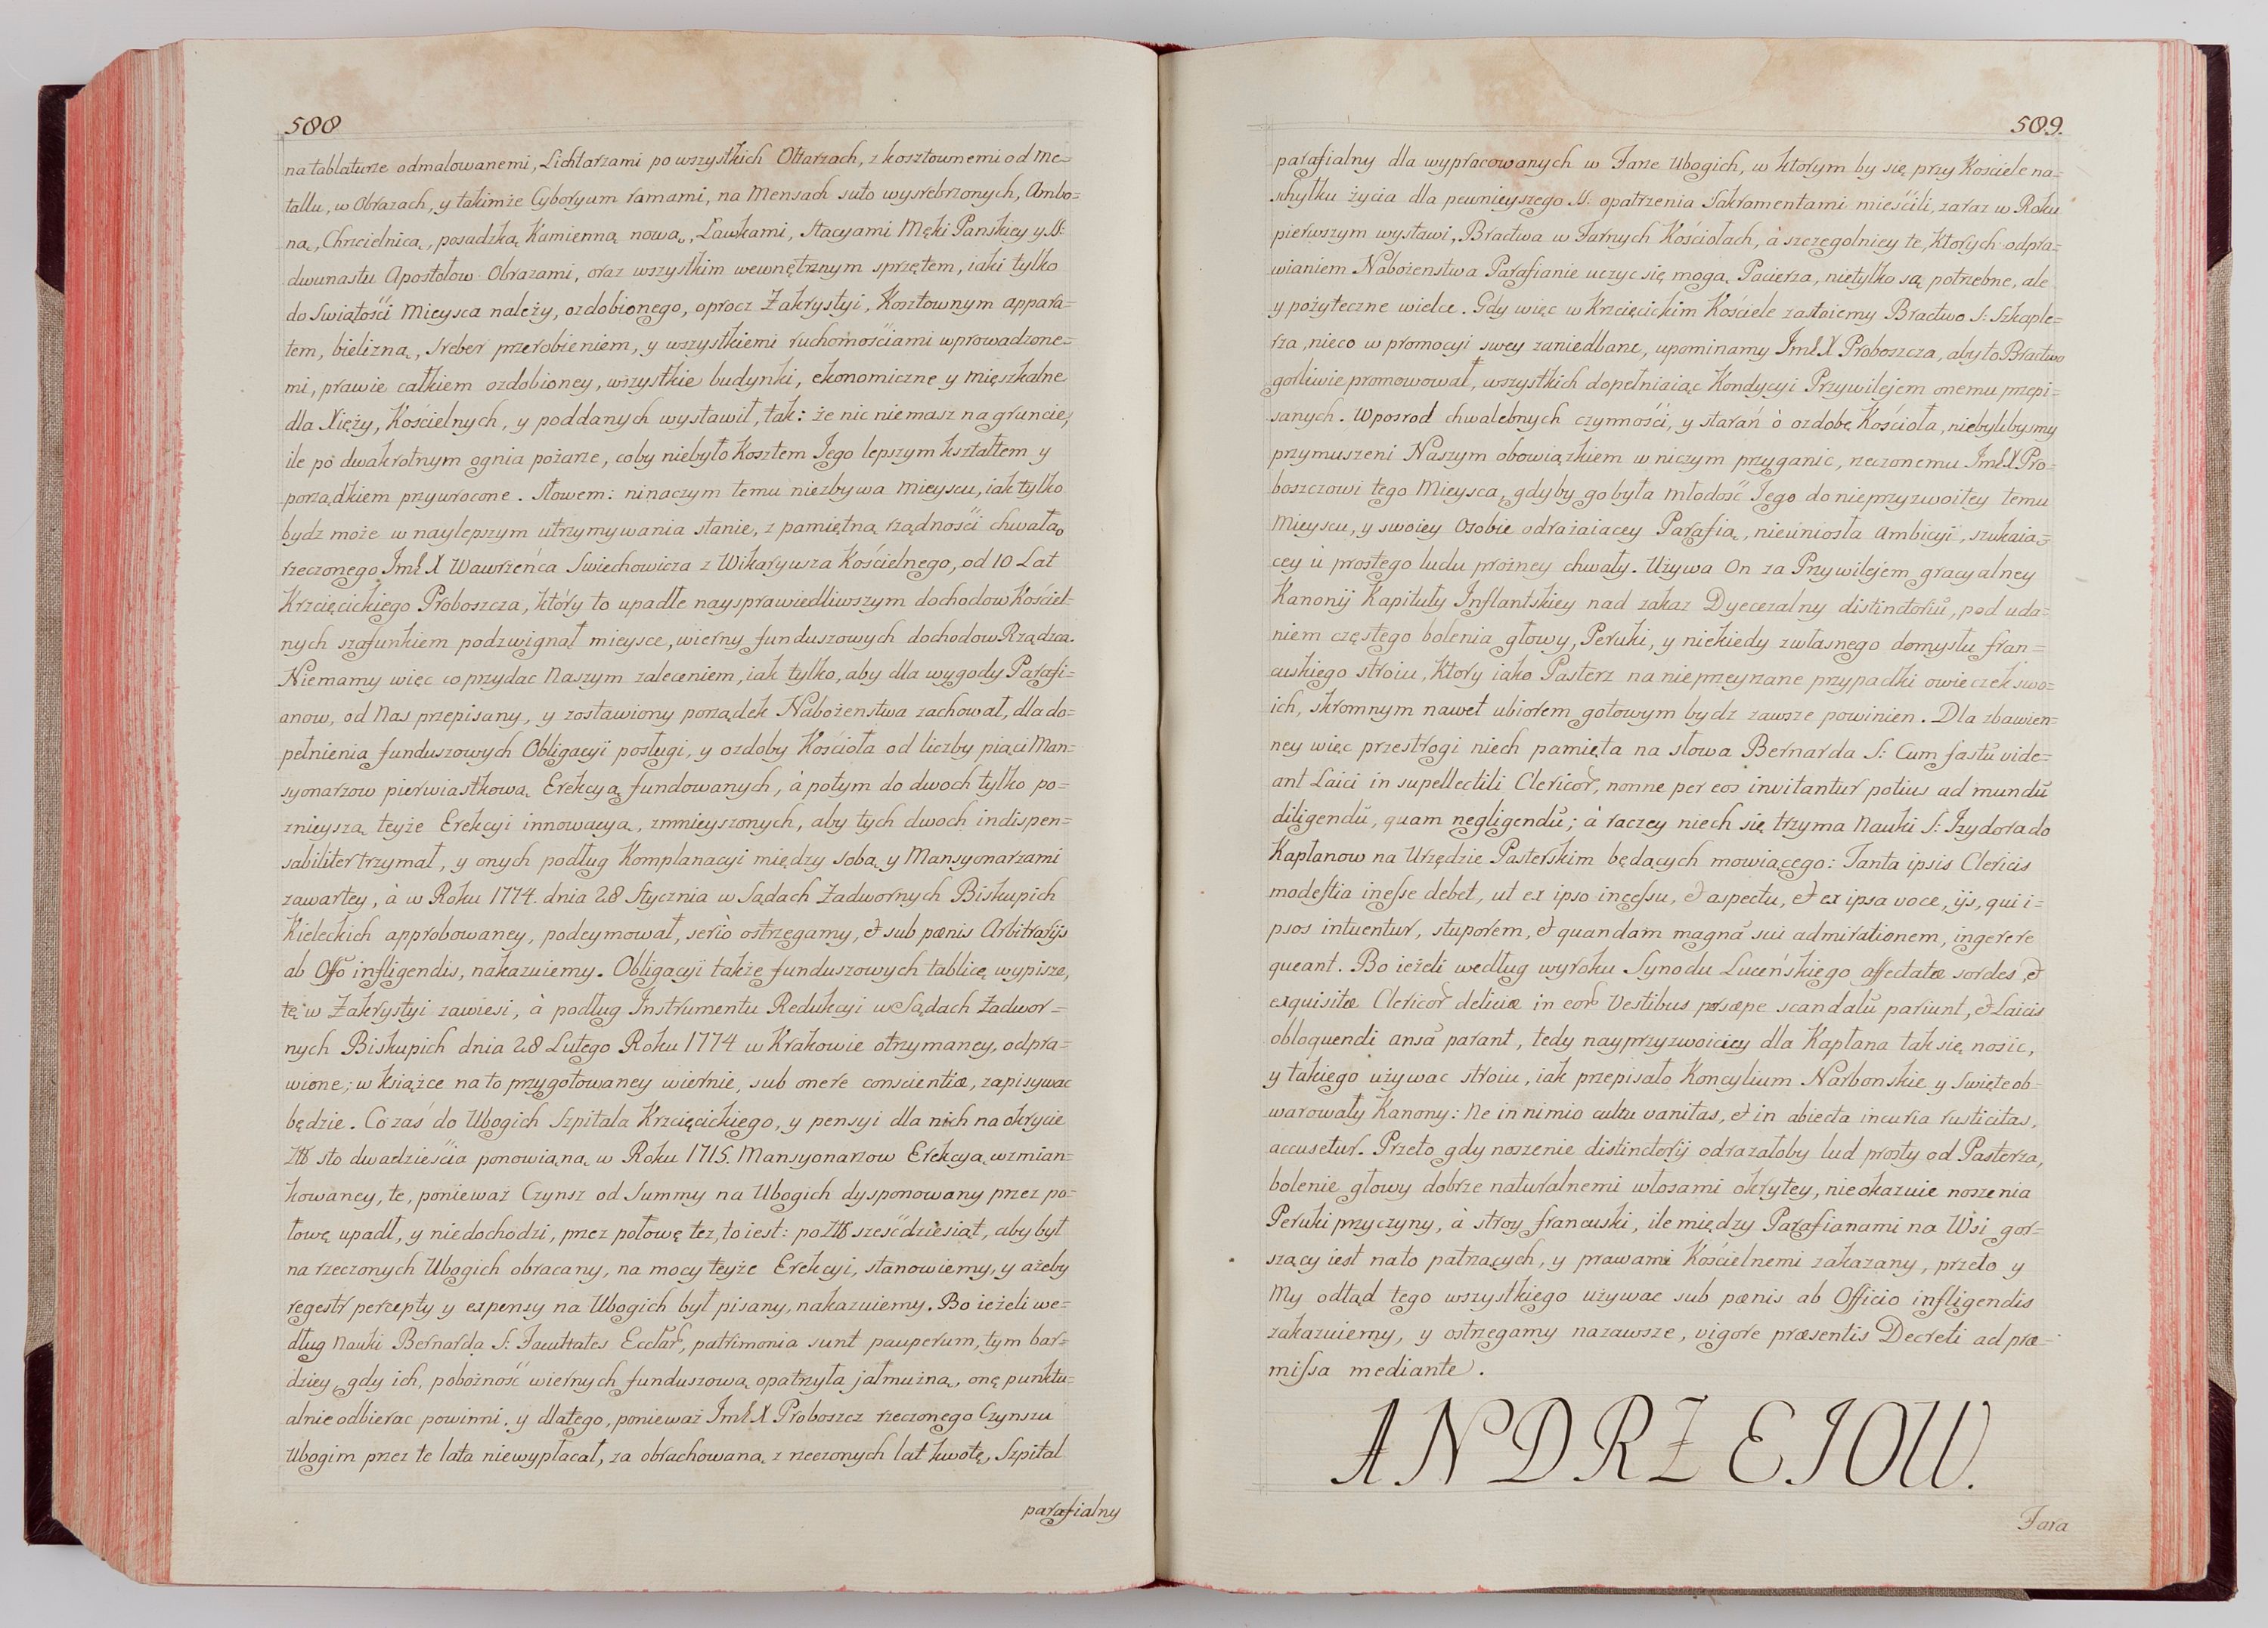 588
na tablaturze odmalowanemi, Lichtarzami po wszystkich Ołtarzach, z kosztownemi od me=
tallu, w Obrazach, y takimże Cyboryum ramami, na Mensach suto wysrebrzonych, Ambo=
ną, Chrzcielnicą, posadzką Kamienną nową, Ławkami, Stacyami Męki Panskiey y SS:
dwunastu Apostołow Obrazami, oraz wszystkim wewnętrznym sprzętem, iaki tylko
do Swiątości Mieysca należy, ozdobionego, oprocz Zakrystyi, Kosztownym appara=
tem, bielizną, sreber przerobieniem, y wszystkiemi ruchomościami wprowadzone=
mi, prawie całkiem ozdobioney, wszystkie budynki, ekonomiczne y mięszkalne
dla Xięży, Kościelnych, y poddanych wystawił, tak: że nic niemasz na gruncie,
ile po dwakrotnym ognia pożarze, coby niebyło Kosztem Jego lepszym kształtem y
porządkiem przywrocone. Słowem: ninaczym temu niezbywa Mieyscu, iak tylko
bydz może w naylepszym utrzymywania stanie, z pamiętną rządności chwałą
rzeczonego JmX Wawrzeńca Swiechowicza z Wikaryusza Kościelnego, od 10 Lat
Krzcięcickiego Proboszcza, który to upadłe naysprawiedliwszym dochodow Kościel=
nych szafunkiem podzwignął mieysce, wierny funduszowych dochodow Rządzca.
Niemamy więc co przydac Naszym zaleceniem, iak tylko, aby dla wygody Parafi=
anow, od Nas przepisany, y zostawiony porządek Nabożenstwa zachował, dla do=
pełnienia funduszowych Obligacyi posługi, y ozdoby Kościoła od liczby piąci Man=
syonarzow pierwiastkową Erekcyą fundowanych, à potym do dwoch tylko po=
znieyszą teyże Erekcyi innowacyą, zmnieyszonych, aby tych dwoch indispen=
sabiliter trzymał, y onych podług Komplanacyi między sobą y Mansyonarzami
zawartey, à w Roku 1774. dnia 28 Stycznia w Sądach Zadwornych Biskupich
Kieleckich approbowaney, podeymował, serio ostrzegamy, & sub pœnis Arbitrarijs
ab Offo infligendis, nakazuiemy. Obligacyi także funduszowych tablicę wypisze,
tę w Zakrystyi zawiesi, à podług Instrumentu Redukcyi w Sądach Zadwor=
nych Biskupich dnia 28 Lutego Roku 1774 w Krakowie otrzymaney, odpra=
wione; w książce na to przygotowaney wiernie, sub onere conscientiæ, zapisywac
będzie. Co zaś do Ubogich Szpitala Krzcięcickiego, y pensyi dla nich na okrycie
sto dwadzieścia ponowianą w Roku 1715. Mansyonarzow Erekcyą wzmian=
kowaney, te, ponieważ Czynsz od Summy na Ubogich dysponowany przez po=
łowę upadł, y niedochodzi, przez połowę tez, to iest: po sześćdziesiąt, aby był
na rzeczonych Ubogich obracany, na mocy teyże Erekcyi, stanowiemy, y ażeby
regestr percepty y expensy na Ubogich był pisany, nakazuiemy. Bo ieżeli we=
dług Nauki Bernarda S: Facultates Ecclar, patrimonia sunt pauperum, tym bar=
dziey, gdy ich, pobożność wiernych funduszową opatrzyła jałmużną, onę punktu=
alnie odbierac powinni, y dlatego, ponieważ JmX Proboszcz rzeczonego Czynszu
Ubogim przez te lata niewypłacał, za obrachowaną z rzeczonych lat kwotę, Szpital
parafialny
589.
parafialny dla wypracowanych w Farze Ubogich, w ktorym by się przy Kościele na=
schyłku życia dla pewnieyszego SS: opatrzenia Sakramentami mieścili, zaraz w Roku
pierwszym wystawi, Bractwa w Farnych Kościołach, à szczegolniey te, ktorych odpra=
wianiem Nabożenstwa Parafianie uczyc się mogą Pacierza, nietylko są potrzebne, ale
y pożyteczne wielce. Gdy więc w Krzcięcickim Kościele zastoiemy Bractwo S: Szkaple=
rza, nieco w promocyi swey zaniedbane, upominamy JmX Proboszcza, aby to Bractwo
gorliwie promowował, wszystkich dopełniaiąc Kondycyi Przywilejem onemu przepi=
sanych. Wposrod chwalebnych czynności, y starań ò ozdobę Kościoła, niebylibysmy
przymuszeni Naszym obowiązkiem w niczym przyganic, rzeczonemu JmX Pro=
boszczowi tego Mieysca, gdyby go była młodość Jego do nieprzyzwoitey temu
Mieyscu, y swoiey Osobie odrażaiacey Parafią, nieuniosła Ambicyi, szukaią=
cey ù prostego ludu prożney chwały. Używa On za Przywilejem gracyalney
Kanonij Kapituły Inflantskiey nad zakaz Dyecezalny distinctoriū, pod uda=
niem częstego bolenia głowy, Peruki, y niekiedy zwłasnego domysłu fran=
cuskiego stroiu, ktory iako Pasterz na nieprzeyrzane przypadki owieczek swo=
ich, skromnym nawet ubiorem gotowym bydz zawsze powinien. Dla zbawien=
ney więc przestrogi niech pamięta na słowa Bernarda S: Cum fastū vide=
ant Laici in supellectili Clericor, nonne per eos invitantur potius ad mundū
diligendū, quam negligendū; à raczey niech się trzyma Nauki S: Izydora do
Kapłanow na Urzędzie Pasterskim będących mowiącego: Tanta ipsis Clericis
modestia inesse debet, ut ex ipso incessu, & aspectu, & ex ipsa voce, ijs, qui i=
psos intuentur, stuporem, & quandam magnā sui admirationem, ingerere
queant. Bo ieżeli według wyroku Synodu Luceńskiego affectatæ sordes, &
exquisitæ Clericor deliciæ in eor Vestibus persæpe scandalū pariunt, & Laicis
obloquendi ansā parant, tedy nayprzyzwoiciey dla Kapłana tak się nosic,
y takiego używac stroiu, iak przepisało Koncylium Narbonskie y Swięte ob=
warowały Kanony: Ne in nimio cultu vanitas, & in abiecta incuria rusticitas,
accusetur. Przeto gdy noszenie distinctorij odrazałoby lud prosty od Pasterza,
bolenie głowy dobrze naturalnemi włosami okrytey, nieokazuie noszenia
Peruki przyczyny, à stroy francuski, ile między Parafianami na Wsi gor=
szący iest nato patrzących, y prawami Kościelnemi zakazany, przeto y
My odtąd tego wszystkiego używac sub pœnis ab Officio infligendis
zakazuiemy, y ostrzegamy nazawsze, vigore præsentis Decreti ad præ=
missa mediante.
ANDRZEIOW.
Fara